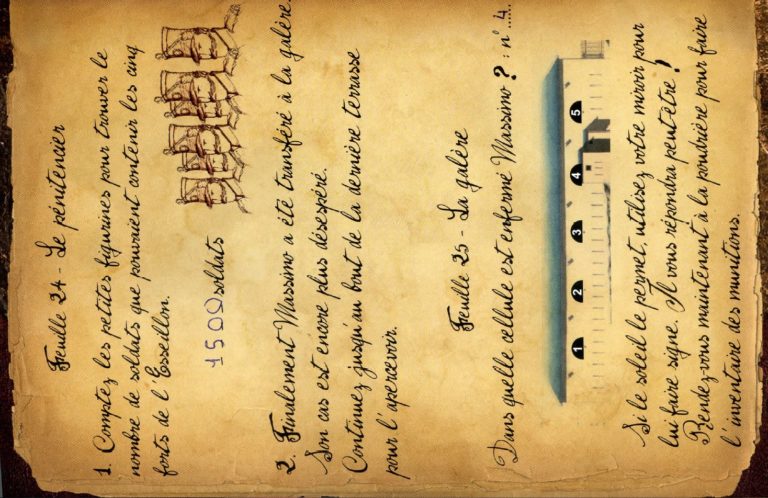 Feuille 24 - Le pénitencier
1. Comptez les petites figurines pour trouver le
nombre de soldats que pouraient contenir les cinq
forts de l'Esseillon.
1500 soldats
2. Finalement Massimo a été transféré à la galère.
Son cas est encore plus désespéré.
Continuez jusqu'au bout de la dernière terrasse
pour l'apercevoir.
Feuille 25 - La galère
Dans quelle cellule est enfermé Massimo ? : n° 4
1 2 3 4 5
Si le soleil le permet, utilisez votre miroir pour
lui faire signe. Il vous répondra peut être !
Rendez-vous maintenant à la poudrière pour faire
l'inventaire des munitions.